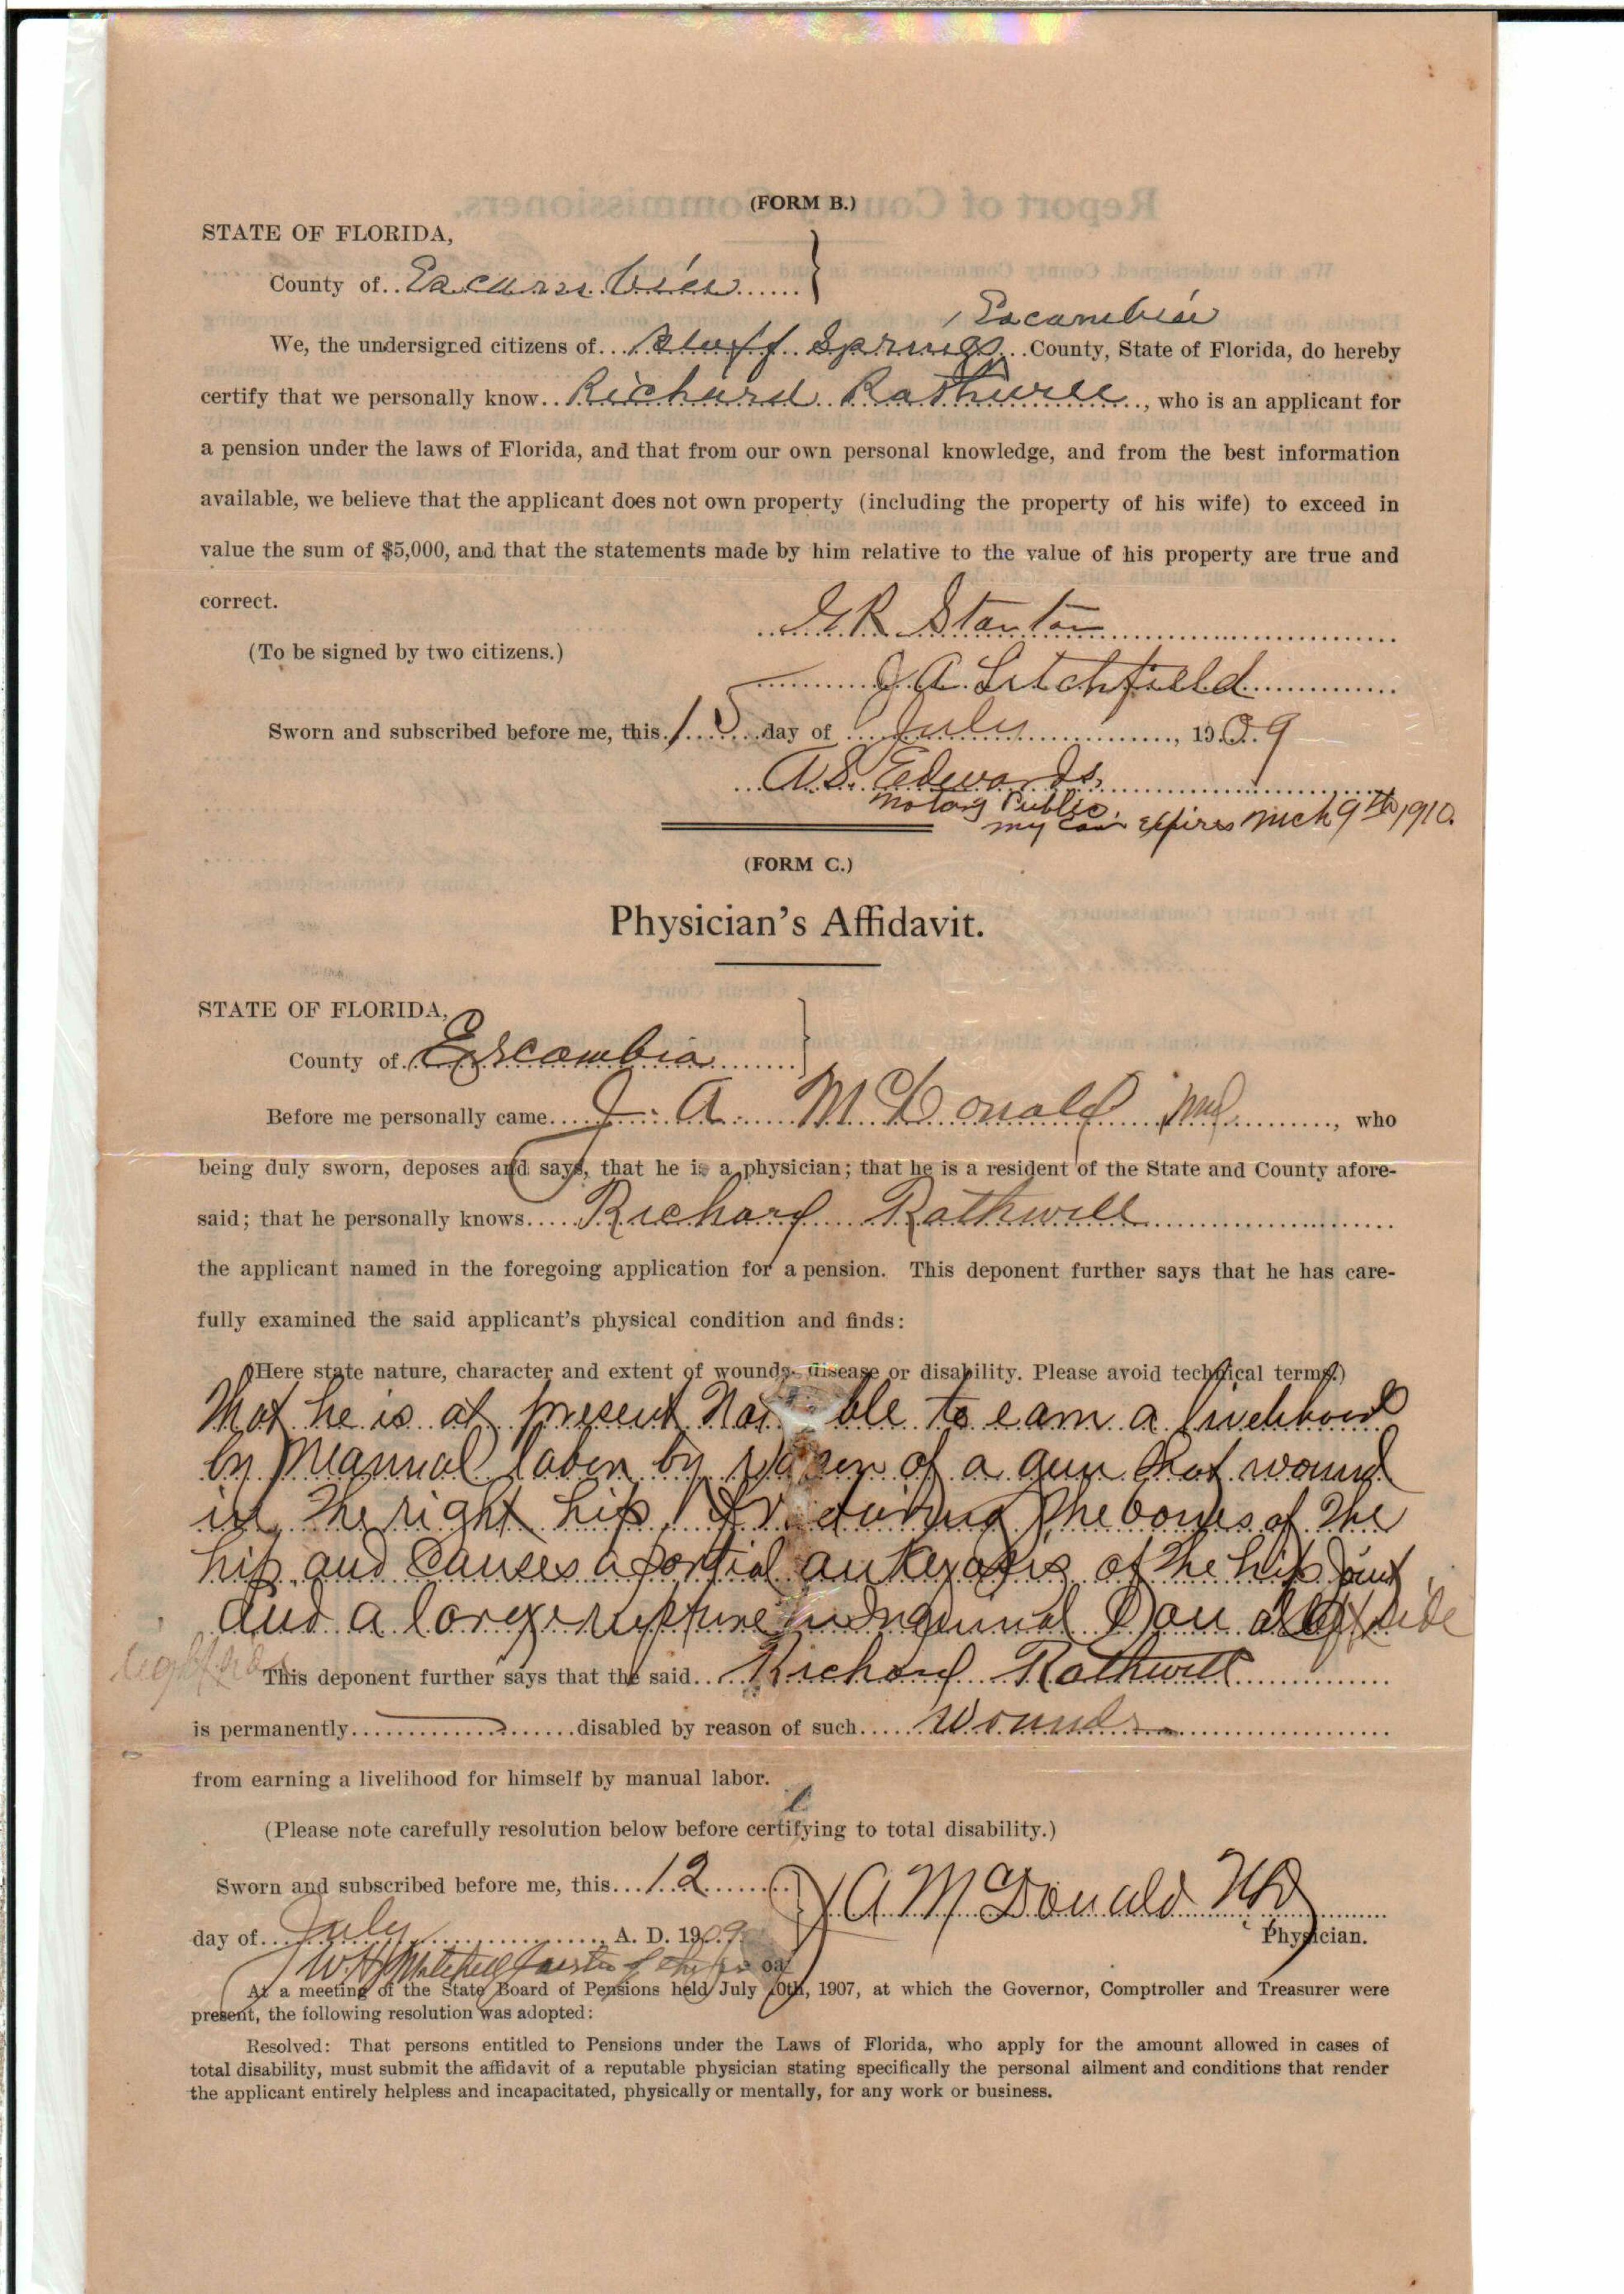 (FORM B.)
STATE OF FLORIDA,
County of Escambia
Escambia
We, the undersigned citizens of Bluff Springs County, State of Florida, do hereby
certify that we personally know Richard Rathwell, who is an applicant for
a pension under the laws of Florida, and that from our own personal knowledge, and from the best information
available, we believe that the applicant does not own property (including the property of his wife) to exceed in
value the sum of $5,000, and that the statements made by him relative to the value of his property are true and
correct.
G R Stanton
(To be signed by two citizens.)
J A Litchfield
Sworn and subscribed before me, this 15 day of July, 1909
A. S. Edwards
Notary Public.
My Com Expires Mch 9th 1910.
(FORM C.)
Physician's Affidavit.
STATE OF FLORIDA,
County of Escambia
Before me personally came J. A. McDonald MD, who
being duly sworn, deposes and says, that he is a physician; that he is a resident of the State and County afore-
said; that he personally knows Richard Rathwell
the applicant named in the foregoing application for a pension. This deponent further says that he has care-
fully examined the said applicant's physical condition and finds:
(Here state nature, character and extent of wounds, disease or disability. Please avoid technical terms.)
That he is at present Not able to earn a livelihood
by Manual labor by reason of a gun shot wound
in the right hip the bones of the
hip and causes a partial of the hip joint
and a large rupture left side
This deponent further says that the said Richard Rathwell
is permanently disabled by reason of such wounds
from earning a livelihood for himself by manual labor.
(Please note carefully resolution below before certifying to total disability.)
Sworn and subscribed before me, this 12
J A McDonald MD
day of July, A. D. 1909
Physician.
W H Mitchell
At a meeting of the State Board of Pensions held July 10th, 1907, at which the Governor, Comptroller and Treasurer were
present, the following resolution was adopted:
Resolved: That persons entitled to Pensions under the Laws of Florida, who apply for the amount allowed in cases of
total disability, must submit the affidavit of a reputable physician stating specifically the personal ailment and conditions that render
the applicant entirely helpless and incapacitated, physically or mentally, for any work or business.